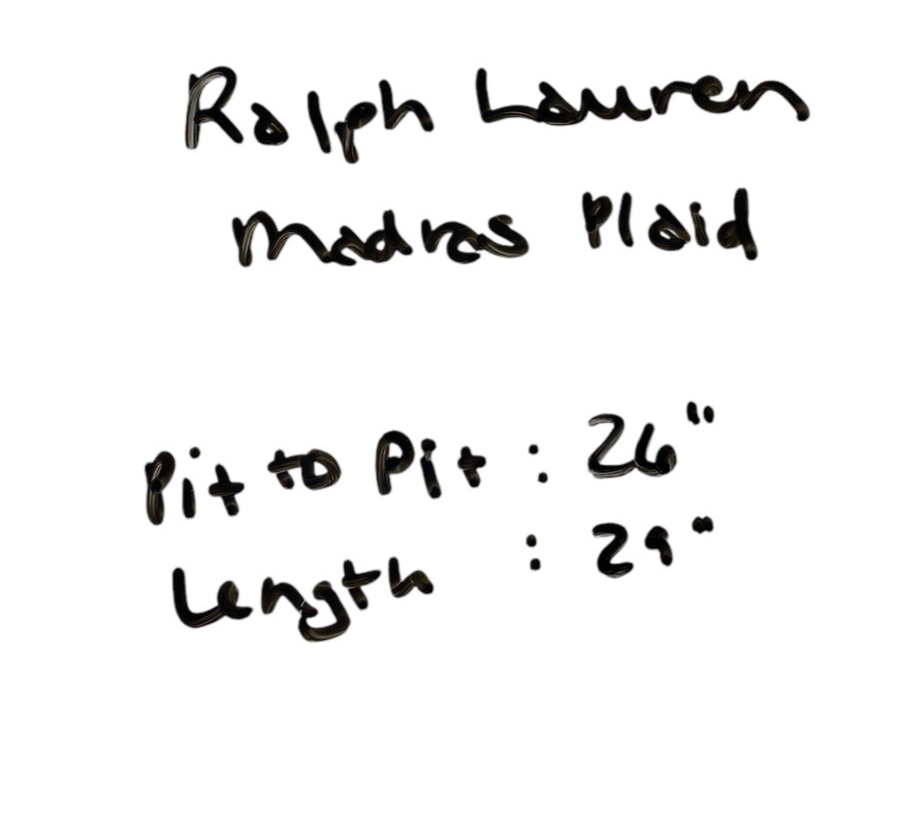 Ralph Lauren
Madras Plaid
Pit to Pit : 26"
Length : 29"